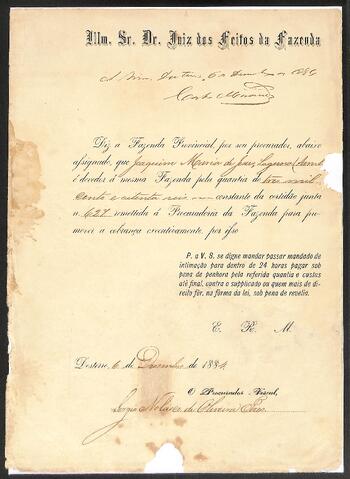 Illm. Sr. Dr. Juiz dos Feitos da Fazenda
A. Sim, Desterro, 6 de Dezembro de 1884
Diz a Fazenda Provincial, por seu procurador, abaixo
assignado, que Joaquim Maria de Jesus
é devedor á mesma Fazenda pela quantia de tres mil
cento e oitenta reis constante da certidão junta
n. 627 remettida á Procuradoria da Fazenda para pro-
mover a cobrança executivamente, por isso
P. a V. S. se digne mandar passar mandado de
intimação para dentro de 24 horas pagar sob
pena de penhora pela referida quantia e custas
até final, contra o supplicado ou quem mais de
direito fôr, na fórma da lei, sob pena de revelia.
E. R. M.
Desterro, 6 de Dezembro de 1884
O Procurador Fiscal,
de Oliveira